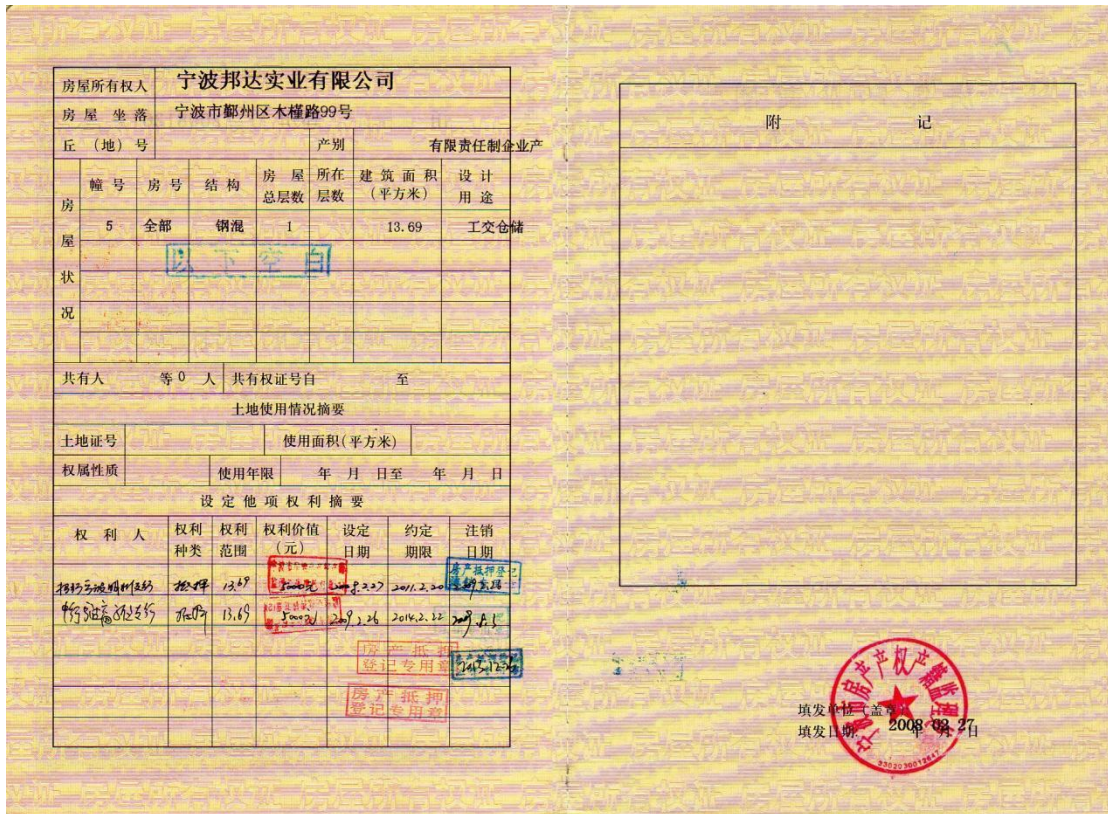 房屋所有权人 宁波邦达实业有限公司
房屋坐落 宁波市鄞州区木槿路99号
丘(地)号 产别 有限责任制企业产
房屋状况
幢号 房号 结构 房屋总层数 所在层数 建筑面积(平方米) 设计用途
5 全部 钢混 1 13.69 工交仓储
以下空白
共有人 等0人 共有权证号自 至
土地使用情况摘要
土地证号 使用面积(平方米)
权属性质 使用年限 年 月 日至 年 月 日
设定他项权利摘要
权利人 权利种类 权利范围 权利价值(元) 设定日期 约定期限 注销日期
抵押 13.69 5000元 2011.2.20
抵押 13.69 5000元 2009.2.26 2014.2.22 2009.8.5
房产抵押登记专用章
2013.12.26
房产抵押登记专用章
附 记
填发单位(盖章)
填发日期: 2008年02月27日